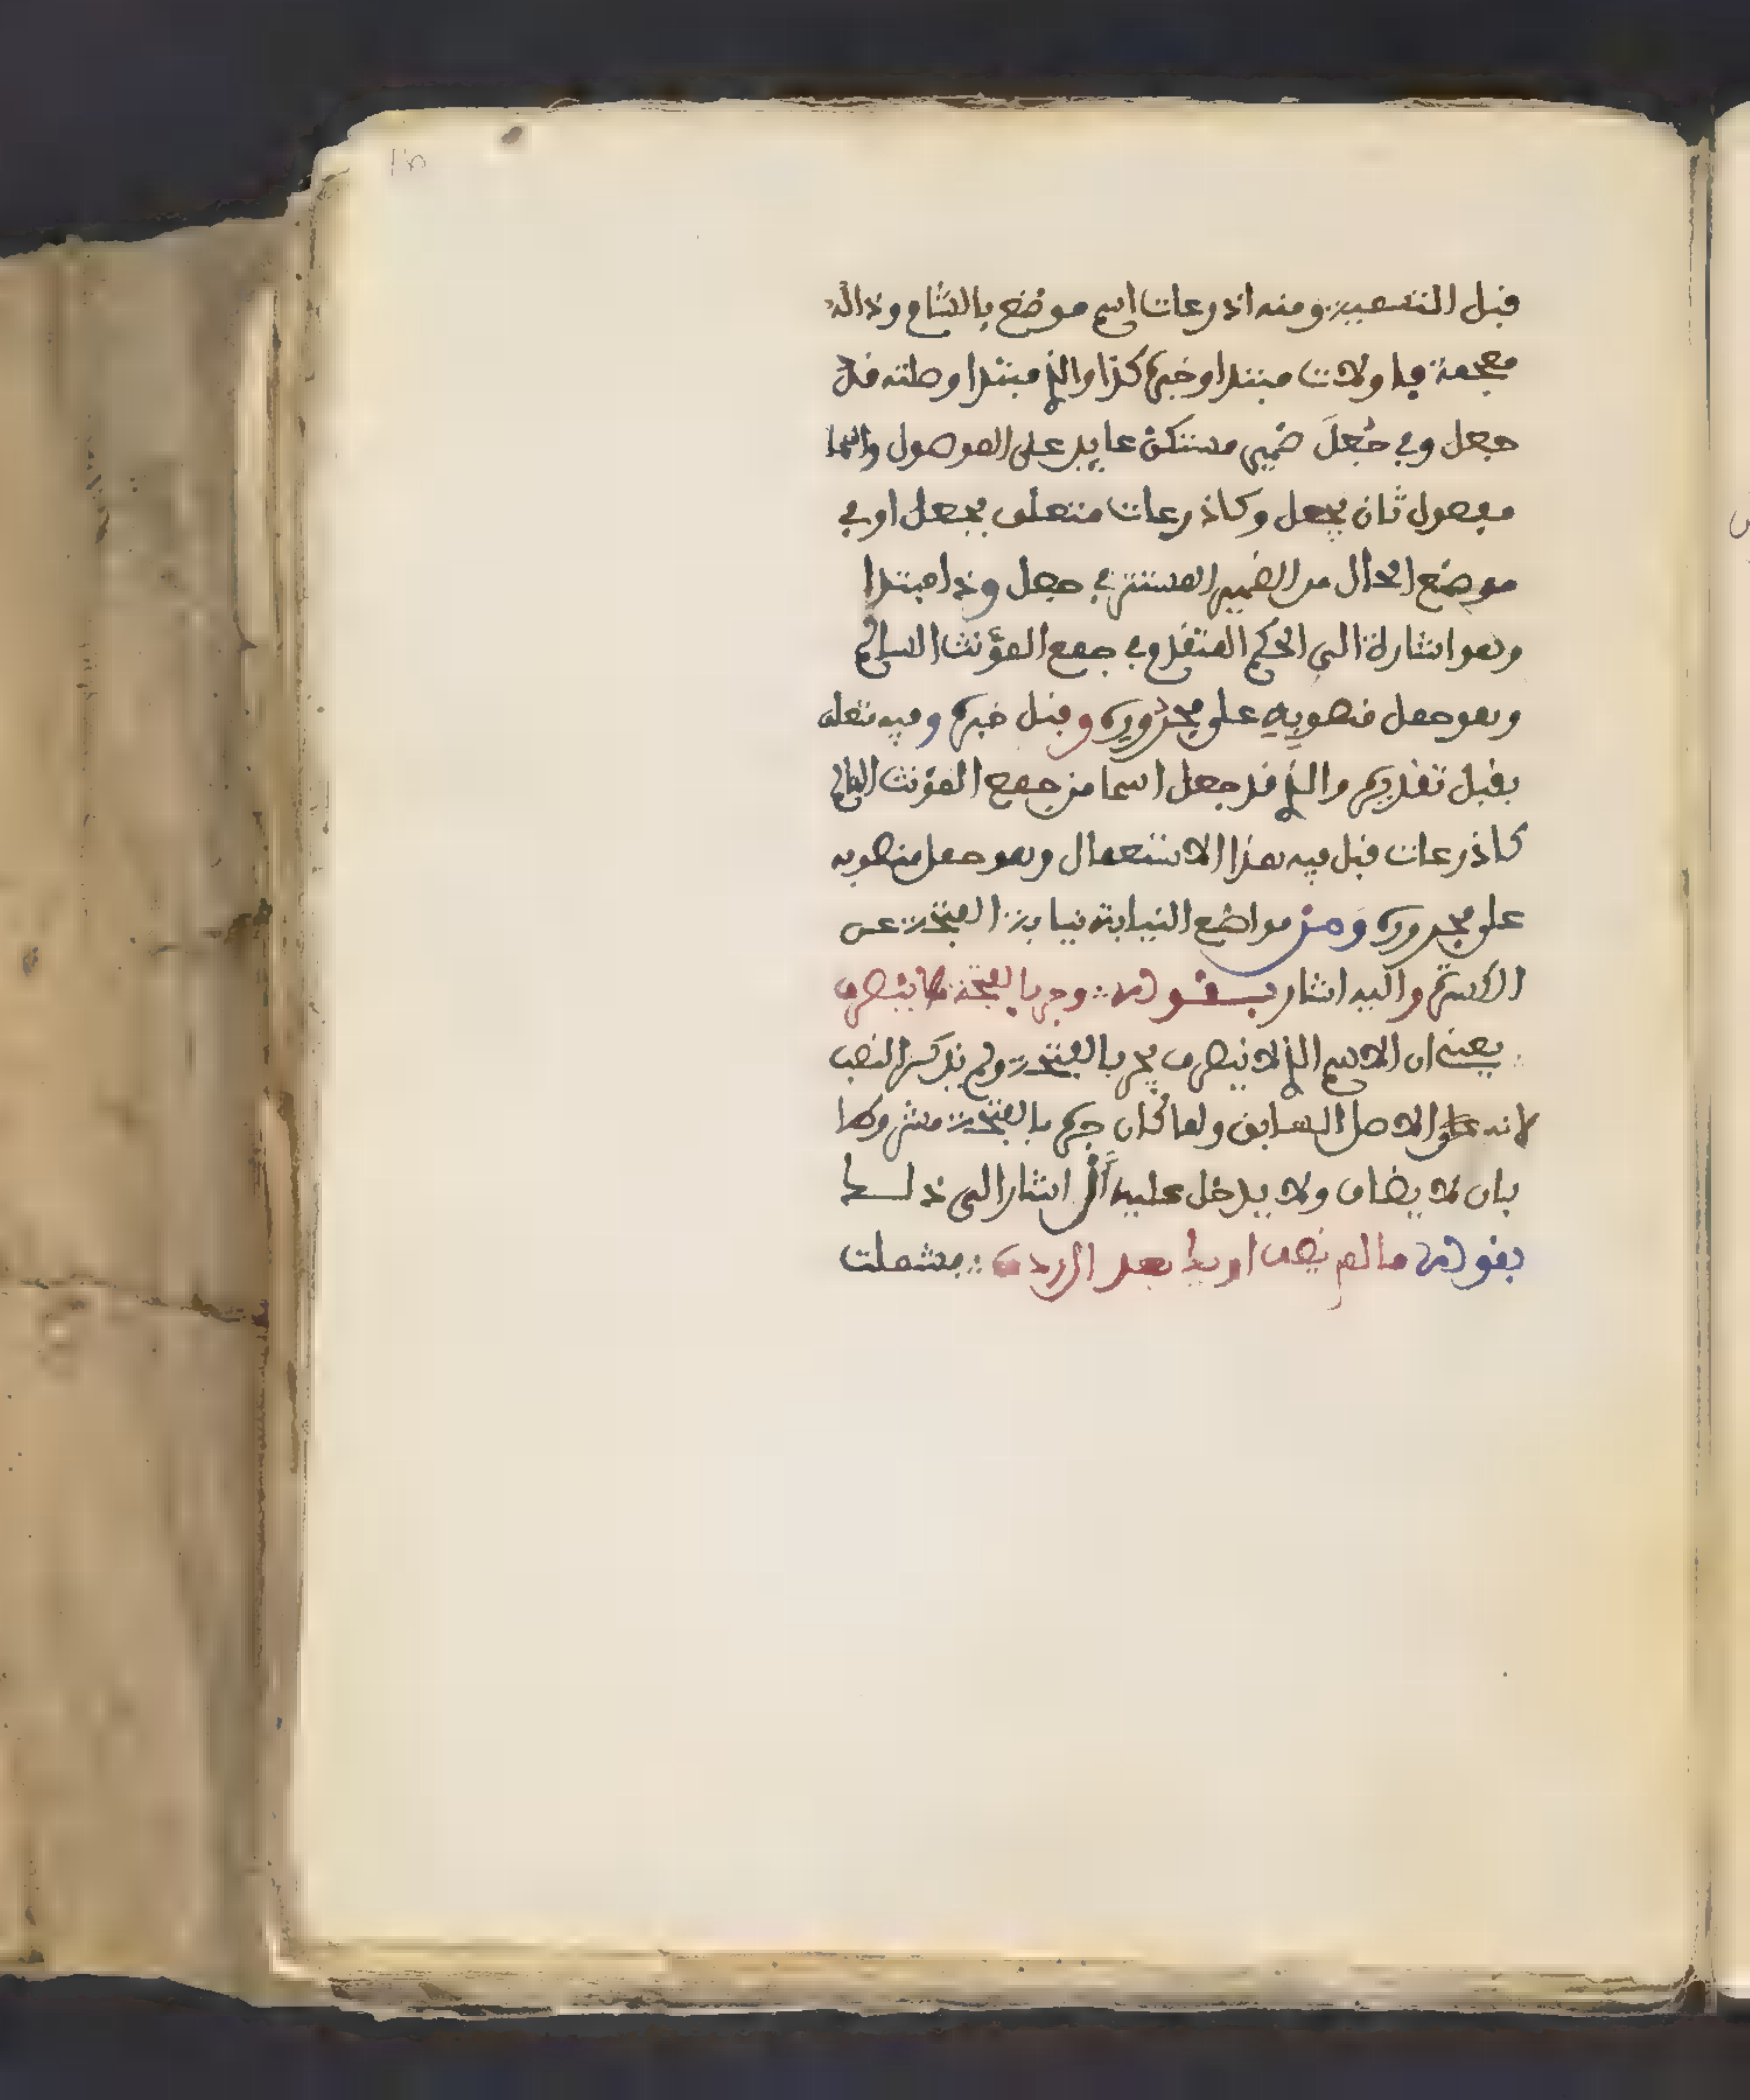 قبل التسمية ومنه اذرعات اسم موضع بالشام وذاله
معجمة فاولات مبتدا وخبره كذا والذي مبتدا وصلته قد
جعل وفي جُعِلَ ضمير مستكن عايد على الموصول واسما
مفعول ثان بجعل وكاذرعات متعلق بجعل او في
موضع الحال من الضمير المستتر في جعل وذا مبتدا
وهو اشارة الى الحكم المتقدم في جمع المؤنث السالم
وهو حمل منصوبه على مجروره وقبل خبره وفيه متعلق
بقبل تقديره والذي قد جعل اسما من جمع المؤنث السالم
كاذرعات قبل فيه هذا الاستعمال وهو حمل منصوبه
على مجروره ومن مواضع النيابة نيابة الفتحة عن
الكسرة واليه اشار بقوله وجر بالفتحة ما لا ينصرف
يعني ان الاسم الذي لا ينصرف يجر بالفتحة ولم يذكر النصب
لانه على الاصل السابق ولما كان جره بالفتحة مشروطا
بان لا يضاف ولا يدخل عليه أل اشار الى ذلك
بقوله ما لم يضف او يك بعد ال ردف فشملت